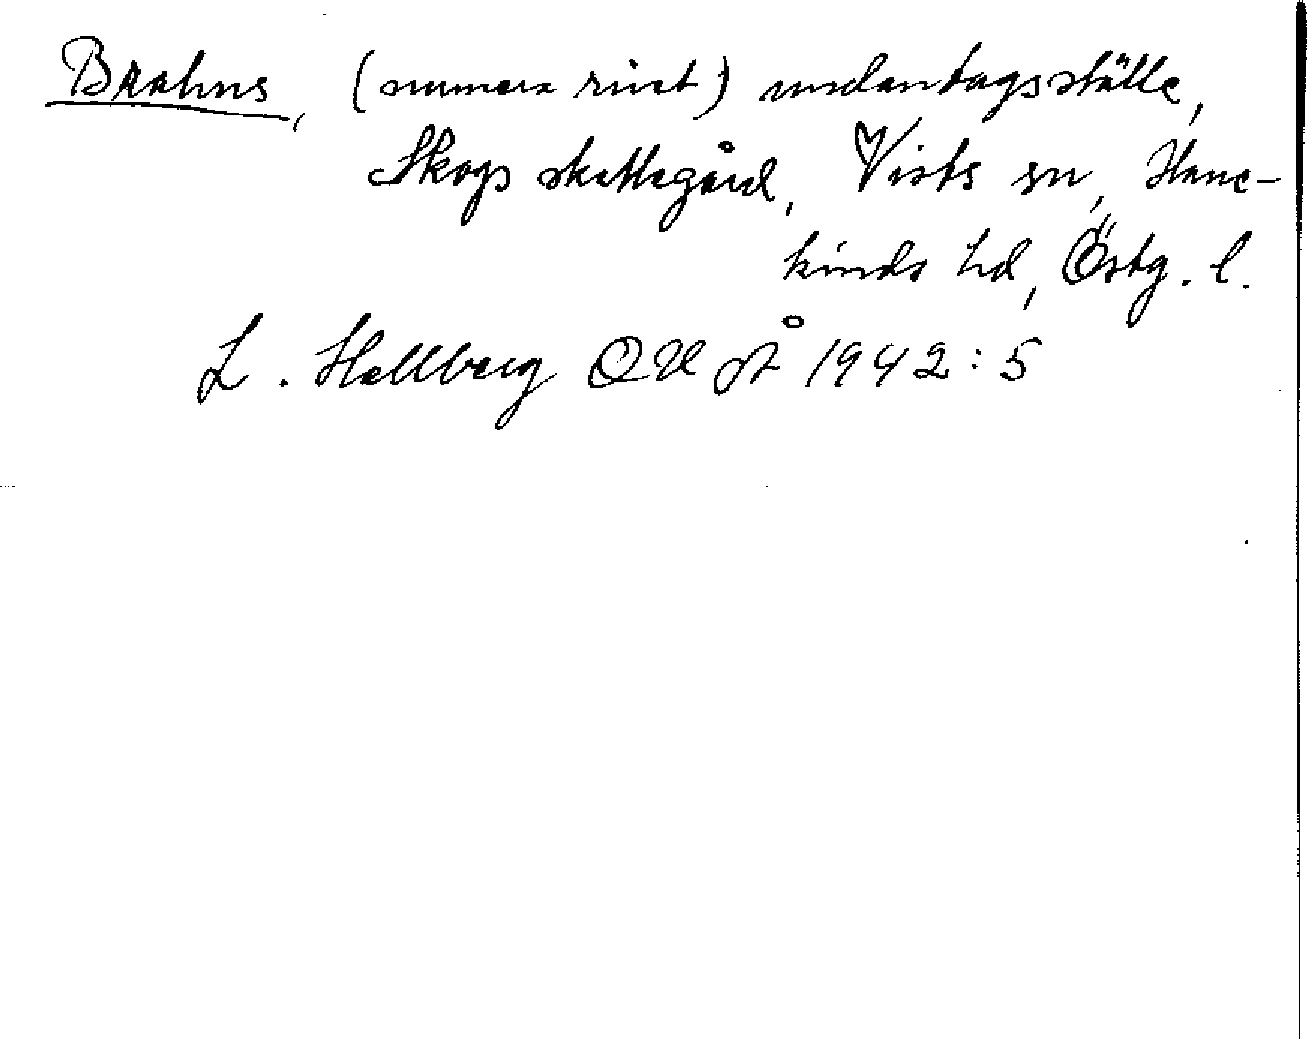 Brahns, (numera rivet) undantagsställe,
Skogs skattegård, Vists sn, Hane-
kinds hd, Östg. l.
L. Hellberg OUÅ 1942:5